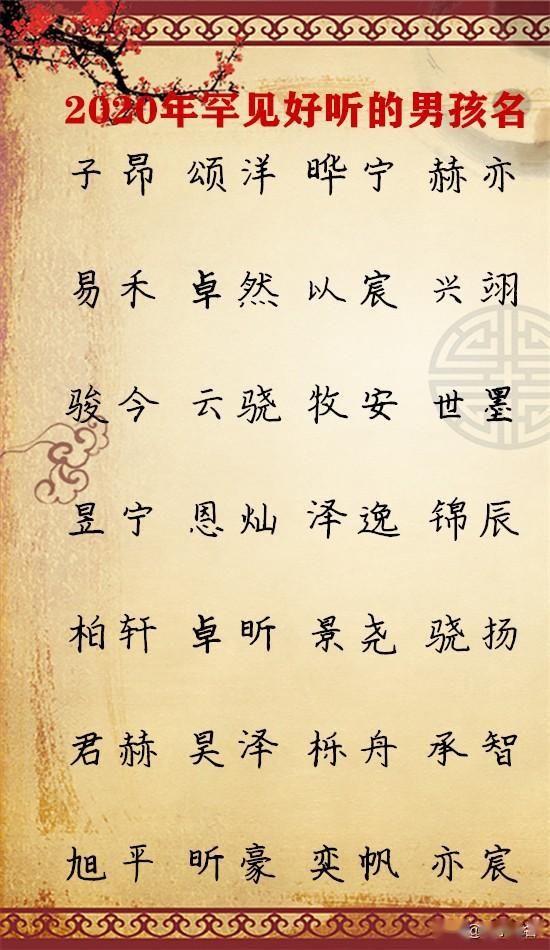 2020年罕见好听的男孩名
子昂 颂洋 晔宁 赫亦
易禾 卓然 以宸 兴翊
骏今 云骁 牧安 世墨
昱宁 恩灿 泽逸 锦辰
柏轩 卓昕 景尧 骁扬
君赫 昊泽 栎舟 承智
旭平 昕豪 奕帆 亦宸